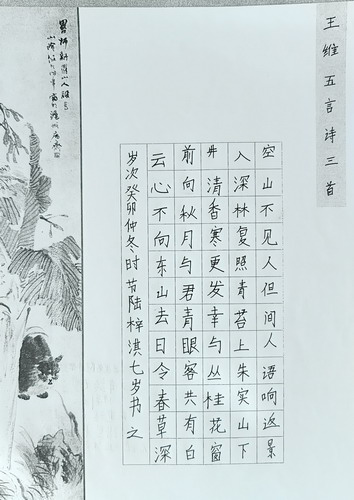 王维五言诗三首
空山不见人但间人语响返景
入深林复照青苔上朱实山下
开清香寒更发幸与丛桂花窗
前向秋月与君青眼客共有白
云心不向东山去日令春草深
岁次癸卯仲冬时节陆梓淇七岁书之